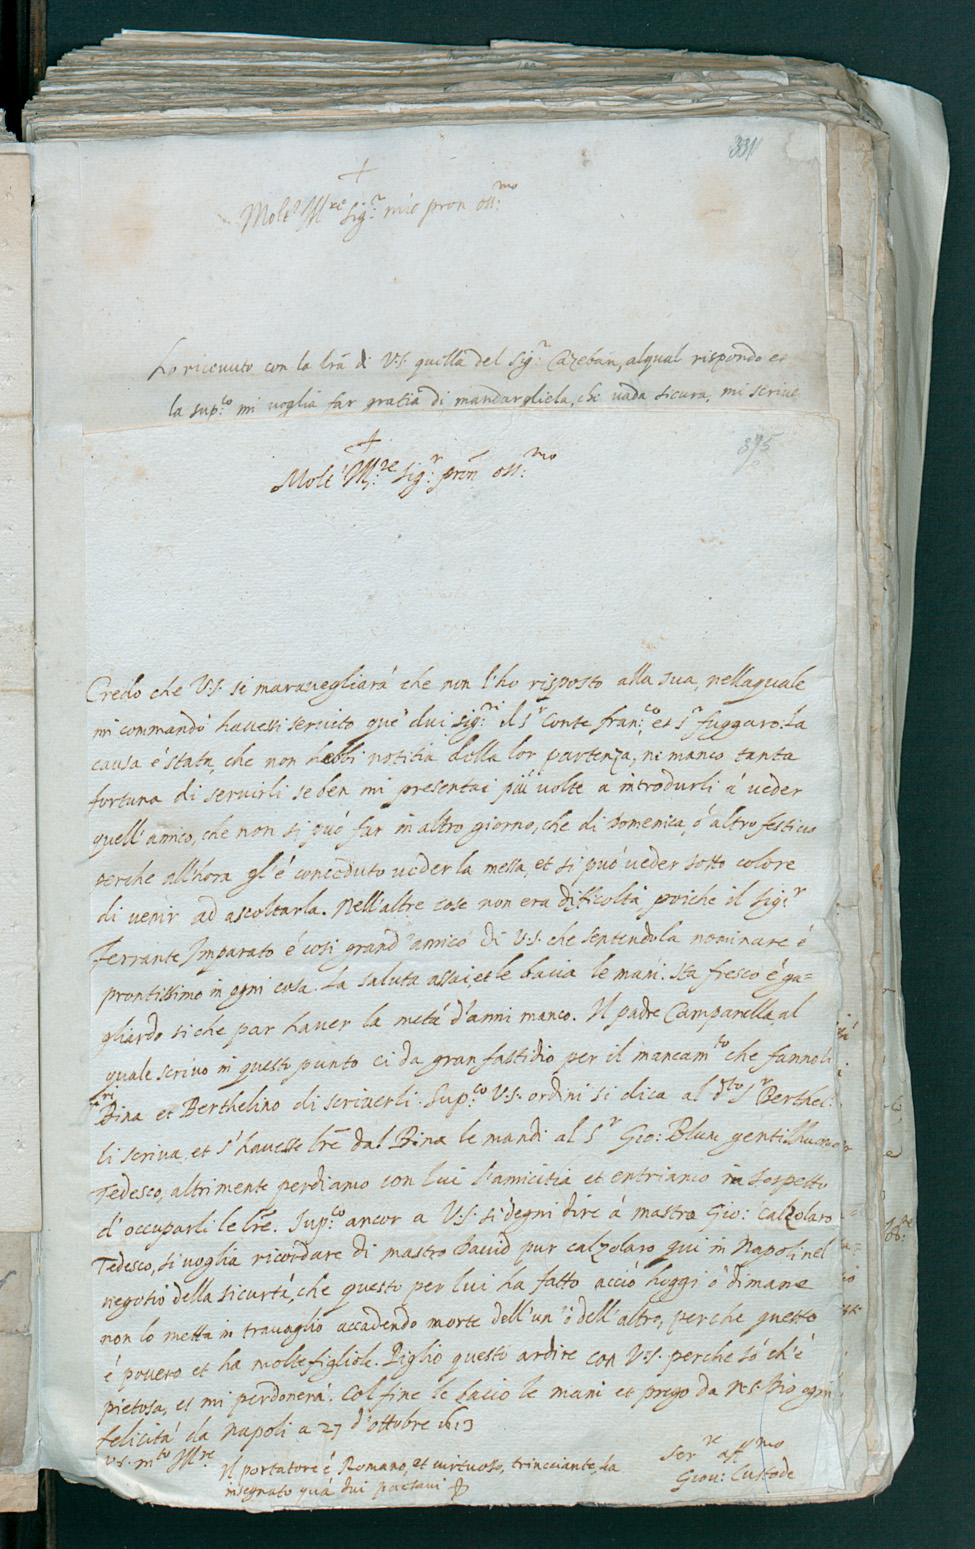 331
+
Molt' Ill.re Sig.r mio pron oss.mo
Ho ricevuto con la lrã di V.S. quella del Sig.r Cazeban, al qual rispondo et
la sup.co mi voglia far gratia di mandargliela, che vada sicura, mi scrive
+
375
Molt' Ill.re Sig.r prõn oss.mo
Credo che V.S. si maravegliarà che non l'ho risposto alla sua, nella quale
mi commandò havessi servito que' dui sig.ri il s.r Conte fran.co et s.r fuggaro: la
causa é stata, che non hebbi notitia della lor partenza, ne manco tanta
fortuna di servirli se ben mi presentai più volte a introdurli à veder
quell' amico, che non si può far in altro giorno, che di Domenica, ó altro festivo
perche all'hora gl'é conceduto veder la messa, et si può veder sotto colore
di venir ad ascoltarla. Nell'altre cose non era difficoltà poiche il sig.r
Ferrante Imparato é così grand' amico di V.S. che sentendola nominare é
prontissimo in ogni cosa. La saluta assai, et le bacia le mani. sta fresco é ga=
gliardo si che par haver la metà d'anni manco. Il padre Campanella, al
quale scrivo in questo punto ci da gran fastidio per il mancam.to che fanno li
s.ri Bina et Berthelino di scriverli. Sup.co V.S. ordini si dica al d.to s.r Berthel:
li scriva, et s'havesse lrẽ dal Bina le mandi al s.r Gio: Blum gentilhuomo
Tedesco, altrimente perdiamo con lui l'amicitia et entriamo in sospetto
d'occuparli le lrẽ. Sup.co ancor a V.S. si degni dire à mastro Gio: calzolaro
Tedesco, si voglia ricordare di mastro David pur calzolaro qui in Napoli nel
negotio della sicurtà, che questo per lui ha fatto acciò hoggi o dimane
non lo metta in travaglio accadendo morte dell'un' ò dell'altro, perche questo
é povero et ha molte figliole. Piglio questo ardire con V.S. perche sò ch'è
pietosa, et mi perdonerà. Col fine le bacio le mani et prego da N.S. Dio ogni
felicità da Napoli a 27 d'ottobre 1613
V.S. m.to Ill.re
Il portatore é Romano, et virtuoso, trinciante, ha
insegnato quà dui
Ser.re aff.mo
Giov: Custode